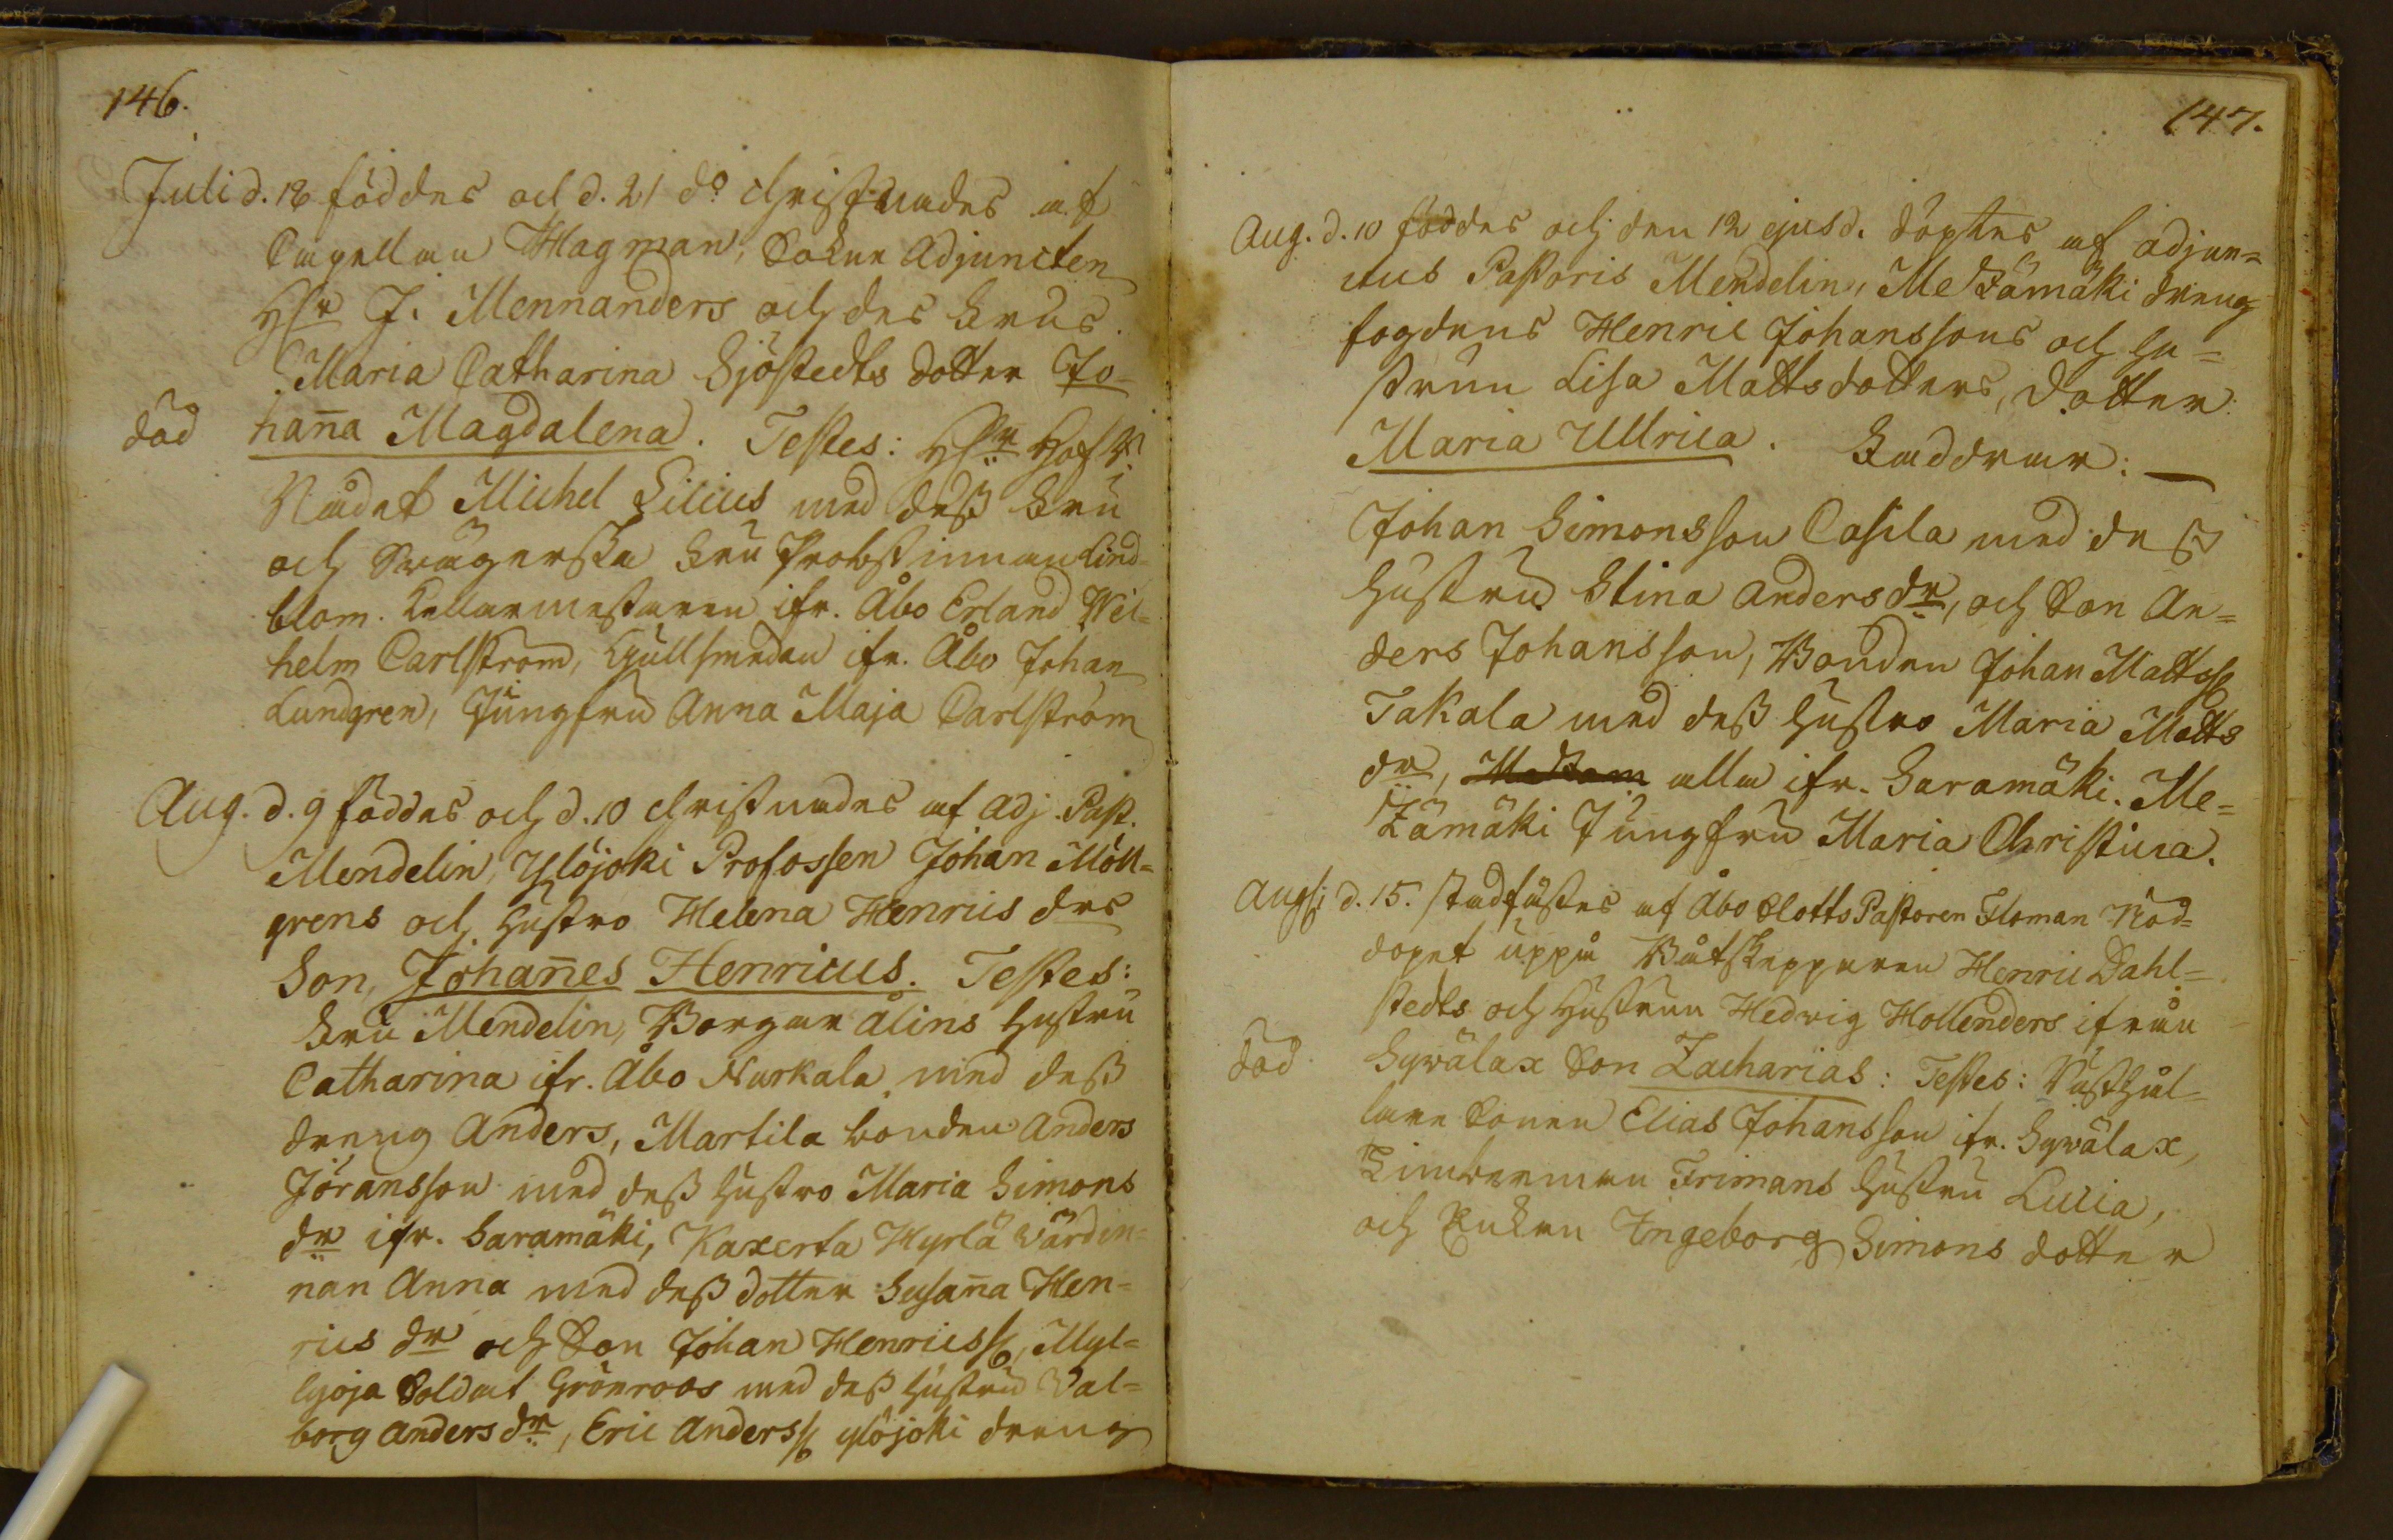 146.
Juli d. 18 föddes och d. 21 do Christnades af
Capellan Hagman, Sokne Adjuncten
Hr J. Mennanders och des Frus
Maria Catharina Sjöstedts dotter Jo-
död hana Magdalena. Testes: Hr Hof R:
Rådet Michel Lilius med dess Fru
och Swägerska Fru Probstinnan Lind-
blom. Kellarmestaren ifr. Åbo Erland Wil-
helm Carlström, Gullsmeden ifr. Åbo Johan
Lundgren, Jungfru Anna Maja Carlström
Aug. d. 9 föddes och d. 10 Christnades af adj. Past.
Mendelin, Ylöjoki Profossen Johan Möll-
grens och hustro Helena Henrics drs
Son, Johanes Henricus. Testes:
Fru Mendelin, Borgar Ålins hustru
Catharina ifr. Åbo Nurkala med dess
dreng Anders, Martila bonden Anders
Jöransson med dess hustro Maria Simons
dr ifr. Saramäki, Kaxerta Hyrlä wärdin-
nan Anna med dess dotter Susana Hen-
rics dr och Son Johan Henricss, Myl-
lyoja Soldat Grönroos med dess hustru Val-
borg Anders dr, Eric Anderss ylöjoki dreng
147.
Aug. d. 10 föddes och den 12 ejusd. döptes af adjun-
ctus Pastoris Mendelin, Metzämäki dreng
fogdens Henric Johanssons och hu-
strun Lisa Mattsdotters, dotter
Maria Ullrica. Faddrar: —
Johan Simonsson Casila med dess
hustru Stina Andersdr, och Son An-
ders Johansson, Bonden Johan Mattss
Takala med dess hustro Maria Matts
dr, alla ifr. Saramäki. Me-
tzämäki Jungfru Maria Christina.
Augsi d. 15. stadfästes af Åbo Slotts Pastoren Floman Nöd-
dopet uppå Båtskepparen Henric Dahl-
stedts och hustrun Hedvig Hollenders ifrån
död. Syvälax Son Zacharias: Testes: Rusthål-
lare Sonen Elias Johansson ifr. Syvälax,
Timberman Frimans hustru Lucia,
och Enkan Ingeborg Simons dotter